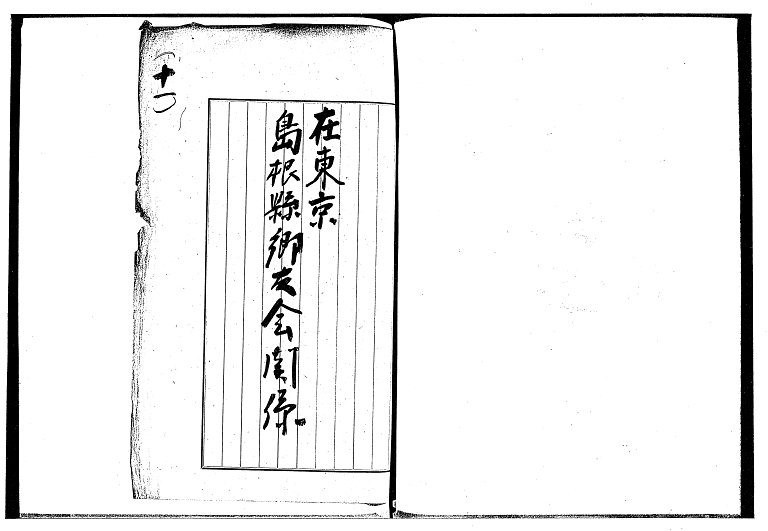 在東京
島根縣鄉友会関係
(十一)